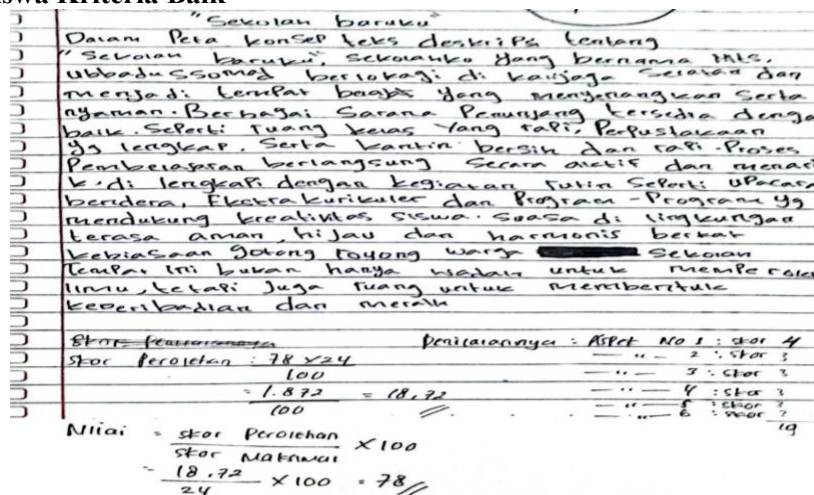 iswa Kriteria Baik
"Sekolah baruku"
Dalam Peta konsep teks deskripsi tentang
"Sekolah baruku", sekolahku yang bernama Mts.
Ubbadussomad berlokasi di kalijaga selatan dan
menjadi tempat yang menyenangkan serta
nyaman. Berbagai Sarana Penunjang tersedia denga
baik. Seperti ruang kelas yang rapi, Perpustakaan
yg lengkap, Serta kantin bersih dan rapi. Proses
Pembelajaran berlangsung Secara aktif dan menari
k. di lengkapi dengan kegiatan rutin Seperti uPacara
bendera, Ekstrakurikuler dan Program - Program yg
mendukung kreativitas siswa. Suasa di lingkungan
terasa aman, hijau dan harmonis berkat
kebiasaan gotong royong warga Sekolah
Tempat ini bukan hanya wadah untuk memperoleh
ilmu, tetapi Juga ruang untuk membentuk
keperibadian dan meraih
Penilaiannya : Aspek No 1 : skor 4
Skor Perolehan : 78 x 24 — " — 2 : skor 3
100 — " — 3 : skor 3
= 1.872 = 18,72 — " — 4 : skor 3
100 — " — 5 : skor 3
— " — 6 : skor
19
Nilai = skor Perolehan x 100
skor Maksimal
= 18,72 x 100 = 78
24